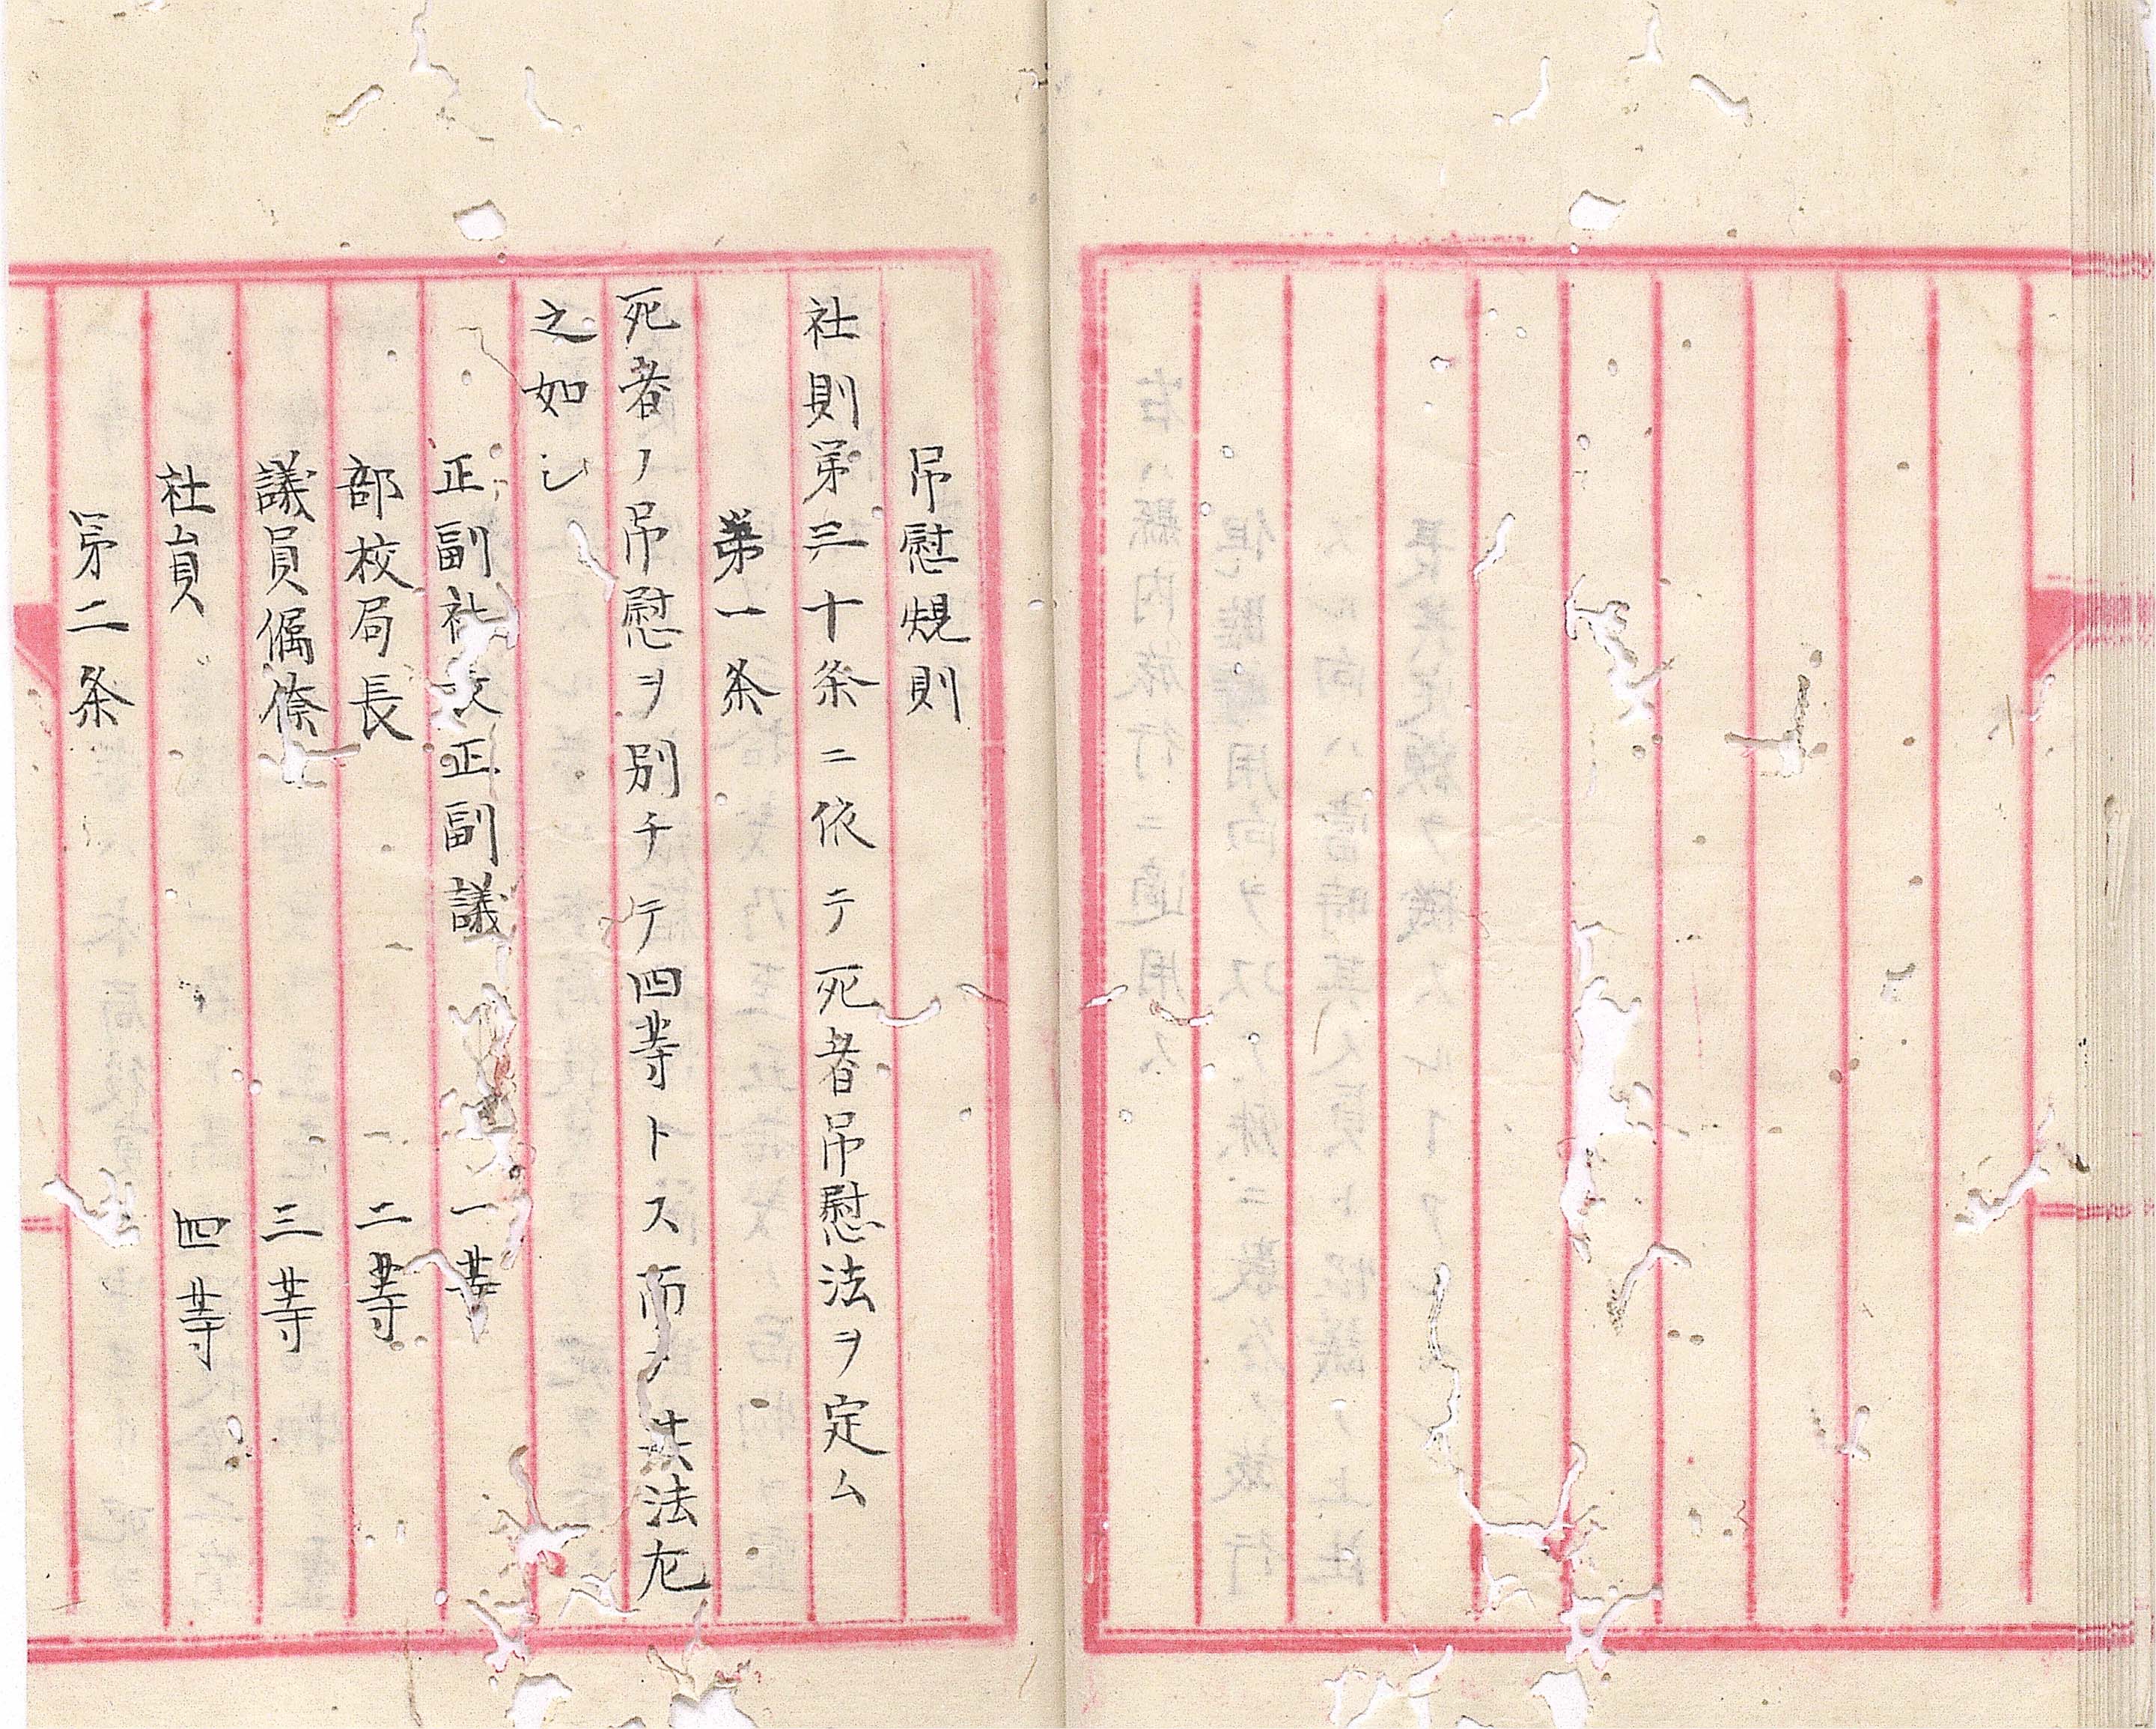 吊慰規則
社則第三十条ニ依テ死者吊慰法ヲ定ム
第一条
死者ノ吊慰ヲ別チテ四等トス而ノ其法左
之如し
正副社 正副議 一等
部校局長 二等
議員 三等
社員 四等
第二条